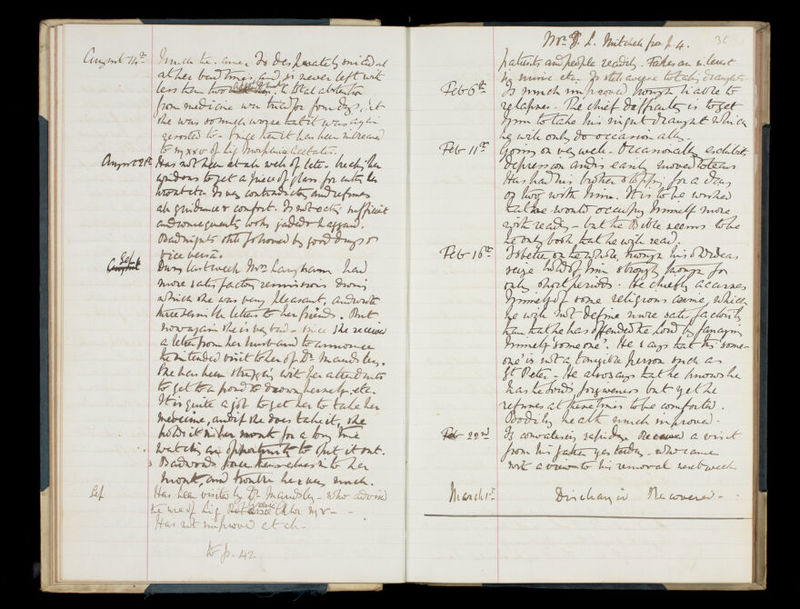 August 14th Is much the same Is desperately suicidal
at her bad times, and is never left with
less than two
from medicine was tried for four days, but
she was so much worse that it was again
resorted to. Since then it has been increased
to mxxv of Liq Morphinae Acetatis.
August 21st Has not been at all well of late. breaks the
windows to get a piece of glass for cutting her
throat etc. Is very contradictory and refuses
all guidance or comfort. Is not eating sufficient
and consequently looks jaded & haggard.
Bad nights often followed by good days or
vice versa.
Sept During last week Mrs had
more satisfactory remissions during
which she was very pleasant, and wrote
three sensible letters to her friends. But
now again she is very bad - since she received
a letter from her husband to announce
the intended visit to her of Dr Maudsley.
She has been struggling with her attendants
to get to a pond to drown herself, etc.
It is quite a job to get her to take her
medicine, and if she does take it, she
holds it in her mouth for a long time
watching an opportunity to spit it out.
Bad words force themselves into her
mouth, and trouble her very much.
Sept Has been visited by Dr Maudsley - who advised
the use of Liq
Has not improved at all.
to p. 42
Mr D. L. Mitchell from p. 4. 36
patients and people readily. Takes an interest
in music etc. Is still averse to taking draught
Feb 6th Is much improved though liable to
relapses. The chief difficulty is to get
him to take his night draught which
he will only do occasionally.
Feb 11th Going on very well. Occasionally exhibits
depression and is easily moved to tears
Has had his brother stopping for a day
or two with him. It is to be wished
that he would occupy himself more
with reading - but the Bible seems to be
the only book that he will read.
Feb 16th Is better on the whole, though his old ideas
seize hold of him strongly though for
only short periods. He chiefly accuses
himself of some religious crime, which
he will not define more satisfactorily
than that he has offended the Lord by fancying
himself 'some one'. He says that this 'some-
one' is not a tangible person such as
St Peter - He also says that he knows he
has the Lord's forgiveness but yet he
refuses at these times to be comforted.
Bodily health much improved.
Feb 22nd Is convalescing rapidly. Received a visit
from his father yesterday - who came
with a view to his removal next week
March 1st Discharged Recovered -